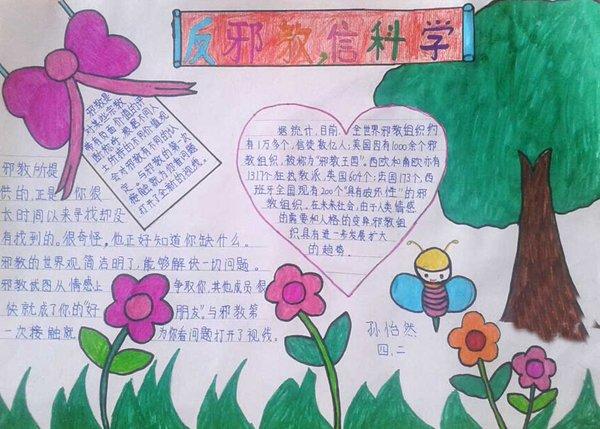 反邪教,信科学
邪教是
对某些宗教
带有负面价值的评
断称呼。根据不同人
士所站的不同价值观
会对邪教有不同的认
定。与邪教第一次
接触,就为你看问题
打开了全新的视线。
邪教所提
供的,正是你很
长时间以来寻找却没
有找到的。很奇怪,他正好知道你缺什么。
邪教的世界观简洁明了,能够解决一切问题。
邪教试图从情感上争取你,其他成员很
快就成了你的“好朋友”,与邪教第
一次接触就为你看问题打开了视线。
据统计,目前,全世界邪教组织约
有1万多个,信徒数亿人;美国四有1000余个邪
教组织,被称为“邪教王国”,西欧和南欧亦有
1317个狂热教派,英国604个;法国173个,西
班牙全国现有200个“具有破坏性”的邪
教组织。在未来社会,由于人类情感
的需要和人格的变异,邪教组
织具有进一步发展扩大
的趋势.
孙怡然
四、二